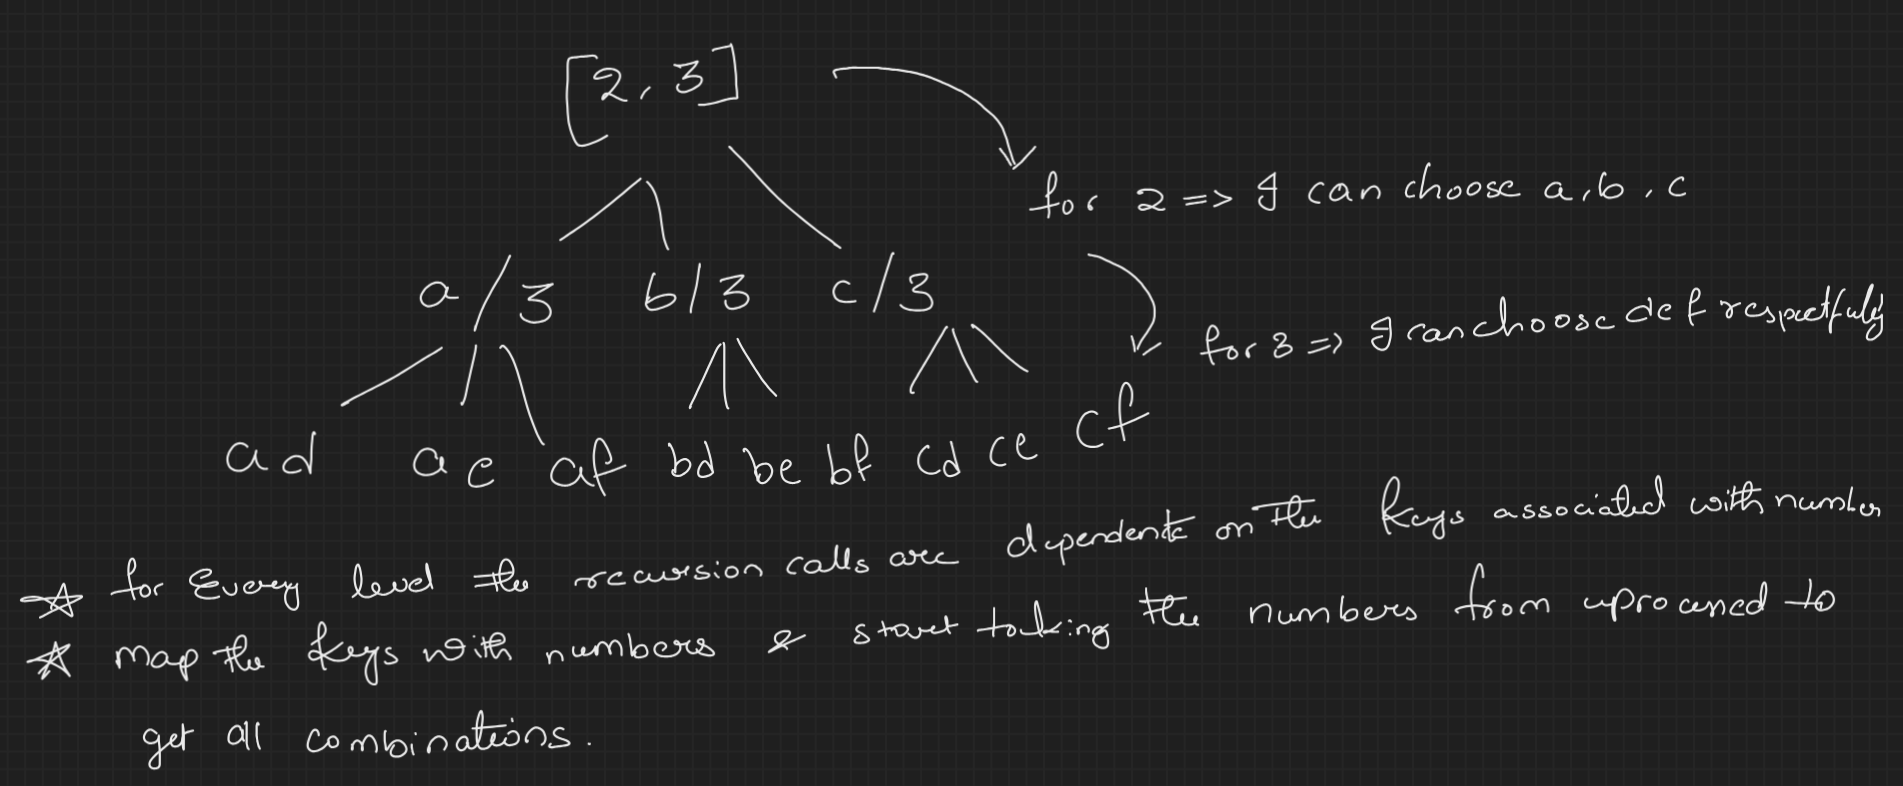 [2, 3]
for 2 => I can choose a, b, c
a/3 b/3 c/3
for 3 => I can choose d e f respectfuly
ad ae af bd be bf cd ce cf
for Every level the recursion calls are dependent on the keys associated with number
map the keys with numbers & start taking the numbers from uprocessed to
get all combinations.